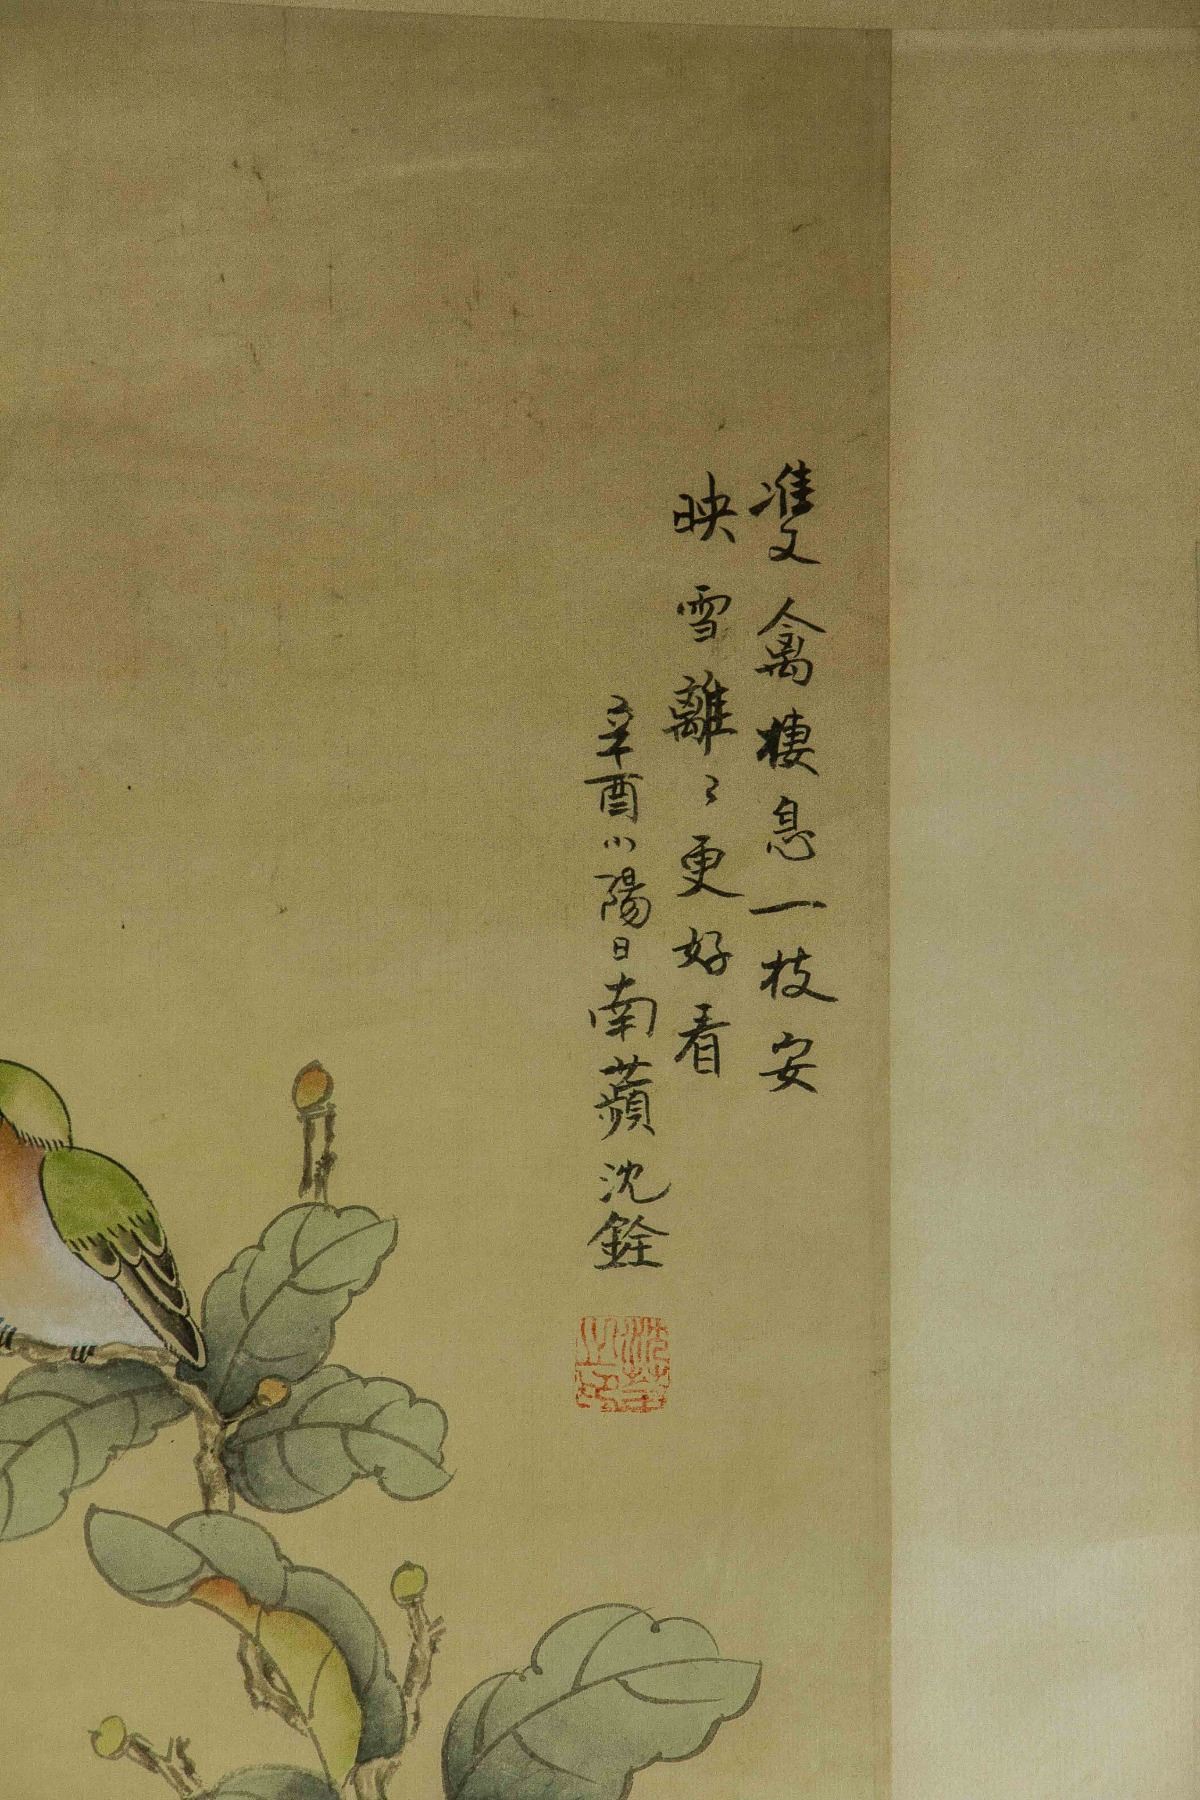 隻禽棲息一枝安
映雪離〻更好看
辛酉小陽日南蘋沈銓
沈銓之印